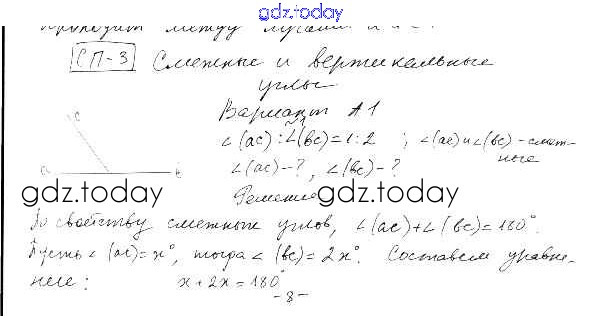 gdz.today
проходит между лучами
СП-3 Смежные и вертикальные
углы
Вариант А1
c
∠(ac) : ∠(bc) = 1:2 ; ∠(ac) и ∠(bc) - смеж-
ные
a b
∠(ac) - ? , ∠(bc) - ?
gdz.today gdz.today
Решение
По свойству смежных углов, ∠(ac)+∠(bc)=180°.
Пусть ∠(ac)=x°, тогда ∠(bc)=2x°. Составим уравне-
ние: x+2x=180°
-8-